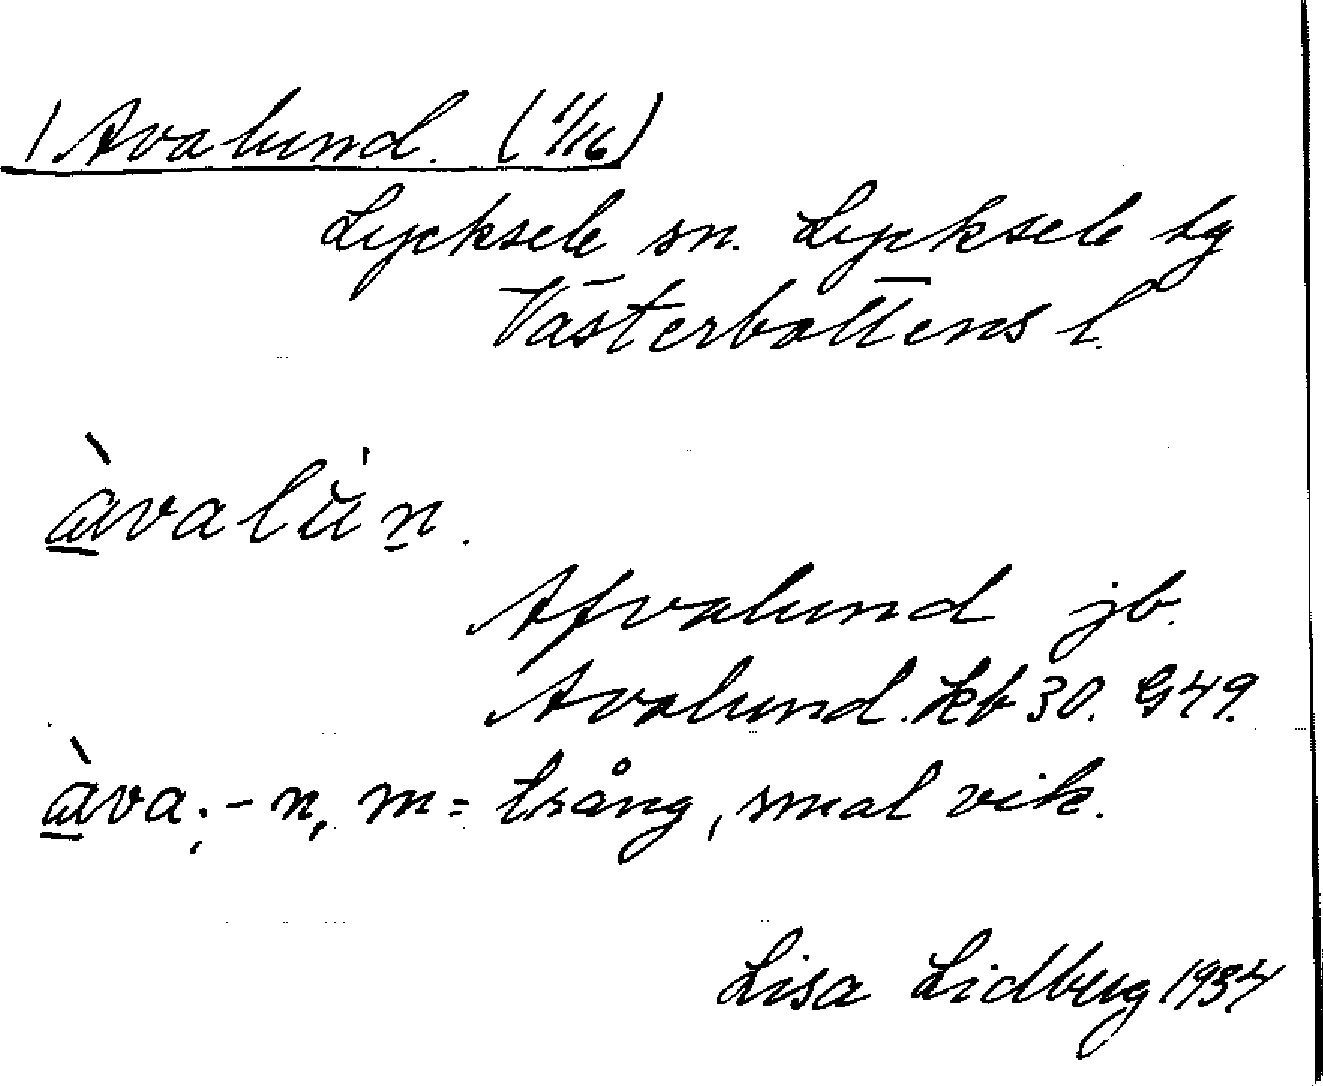 1 Avalund. (1/16)
Lycksele sn. Lycksele lg
Västerbottens l.
àvalùn.
Afvalund jb.
Avalund. kb 30. G49.
àva; -n, m = trång, smal vik.
Lisa Lidberg 1934